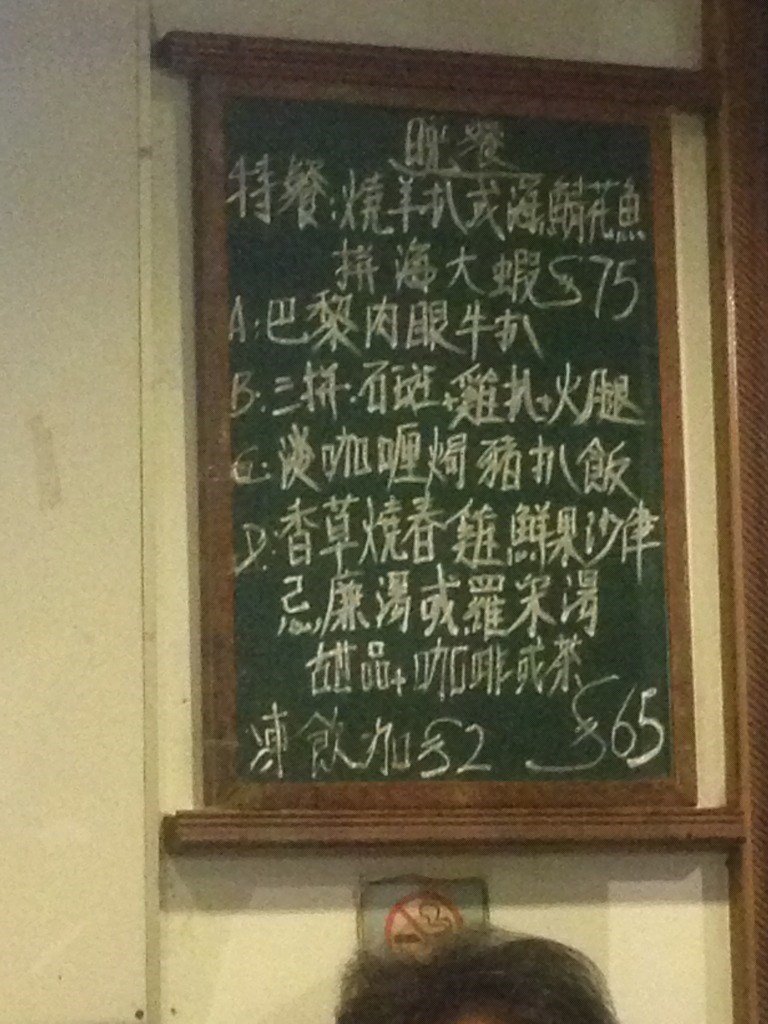 晚餐
特餐:燒羊扒或海鯖花魚
拼海大蝦$75
A:巴黎肉眼牛扒
B:三拼.石斑+雞扒+火腿
C:淡咖喱焗豬扒飯
D:香草燒春雞鮮果沙律
忌廉湯或羅宋湯
甜品+咖啡或茶
凍飲加$2 $65